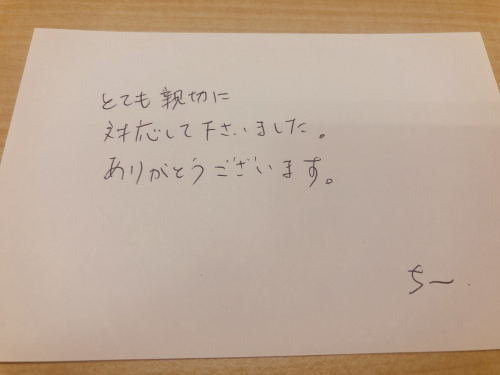 とても親切に
対応して下さいました。
ありがとうございます。
ちー.